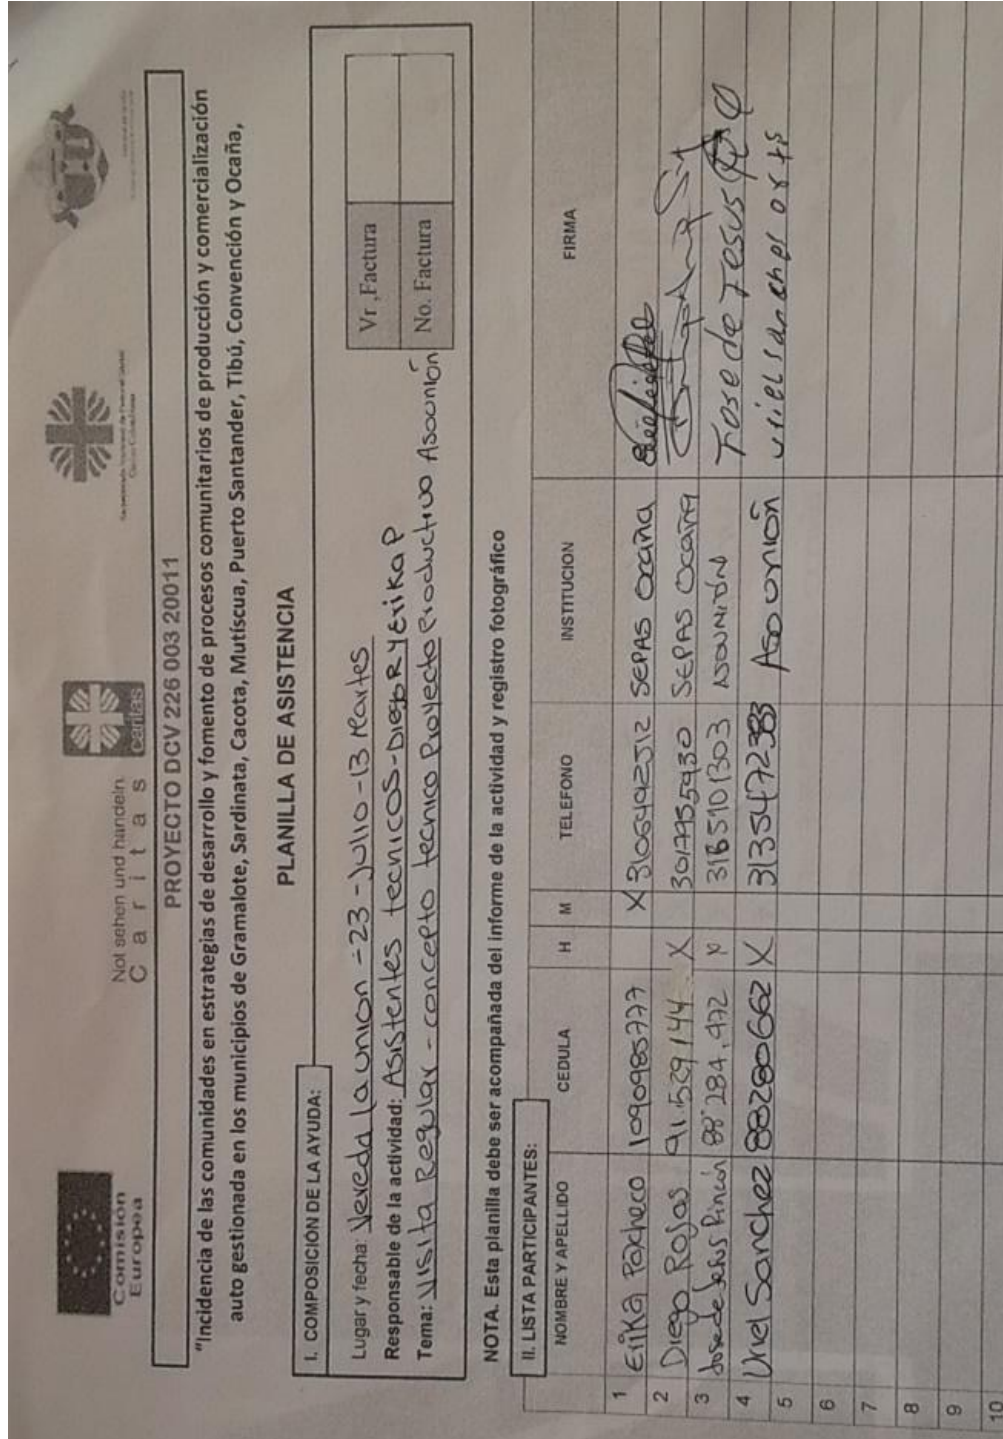 Comisión
Europea
Not sehen und handeln.
Caritas
Caritas
PROYECTO DCV 226 003 20011
"Incidencia de las comunidades en estrategias de desarrollo y fomento de procesos comunitarios de producción y comercialización
auto gestionada en los municipios de Gramalote, Sardinata, Cacota, Mutiscua, Puerto Santander, Tibú, Convención y Ocaña,
PLANILLA DE ASISTENCIA
I. COMPOSICIÓN DE LA AYUDA:
Lugar y fecha: Vereda la union - 23 - Julio - 13 Martes
Responsable de la actividad: Asistentes tecnicos - Diego R y Erika P
Tema: Visita Regular - concepto tecnico Proyecto Productivo Asounión
Vr ,Factura
No. Factura
NOTA. Esta planilla debe ser acompañada del informe de la actividad y registro fotográfico
II. LISTA PARTICIPANTES:
NOMBRE Y APELLIDO CEDULA H M TELEFONO INSTITUCION FIRMA
1 Erika Pacheco 1090985777 X 3106492512 SEPAS Ocaña
2 Diego Rojas 91.529144 X 3017955930 SEPAS Ocaña
3 Jose de Jesus Rincón 88'284.972 X ASOUNIÓN Jose de Jesus
4 Uriel Sanchez 88280662 X 3135472385 Asounión uriel sanchez
5
6
7
8
9
10